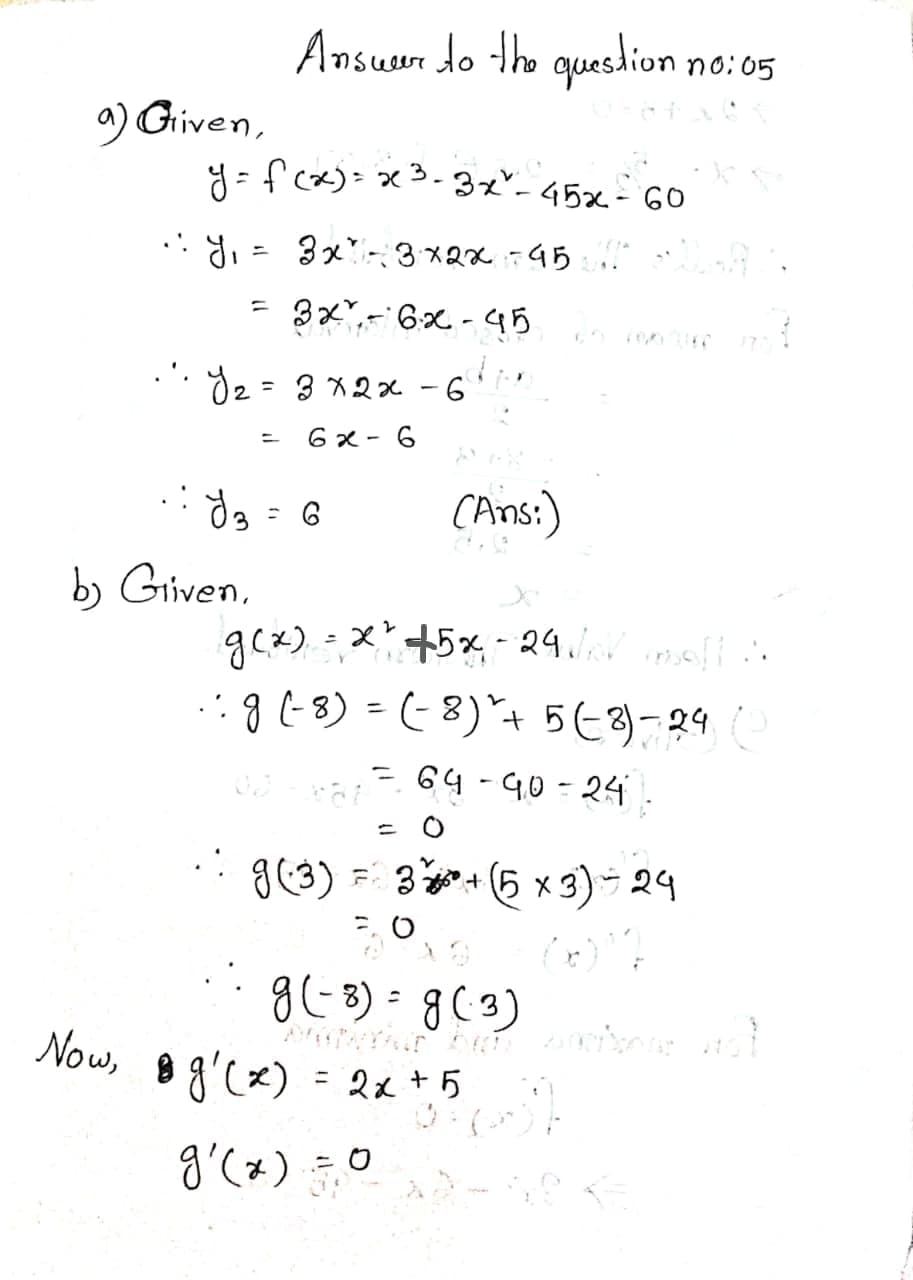 Answer to the question no: 05
a) Given,
y = f(x) = x³ - 3x² - 45x - 60
∴ y₁ = 3x² - 3×2x - 45
= 3x² - 6x - 45
∴ y₂ = 3×2x - 6
= 6x - 6
∴ y₃ = 6 (Ans:)
b) Given,
g(x) = x² + 5x - 24
∴ g(-8) = (-8)² + 5(-8) - 24
= 64 - 40 - 24
= 0
∴ g(3) = 3² + (5 × 3) - 24
= 0
∴ g(-8) = g(3)
Now, g'(x) = 2x + 5
g'(x) = 0